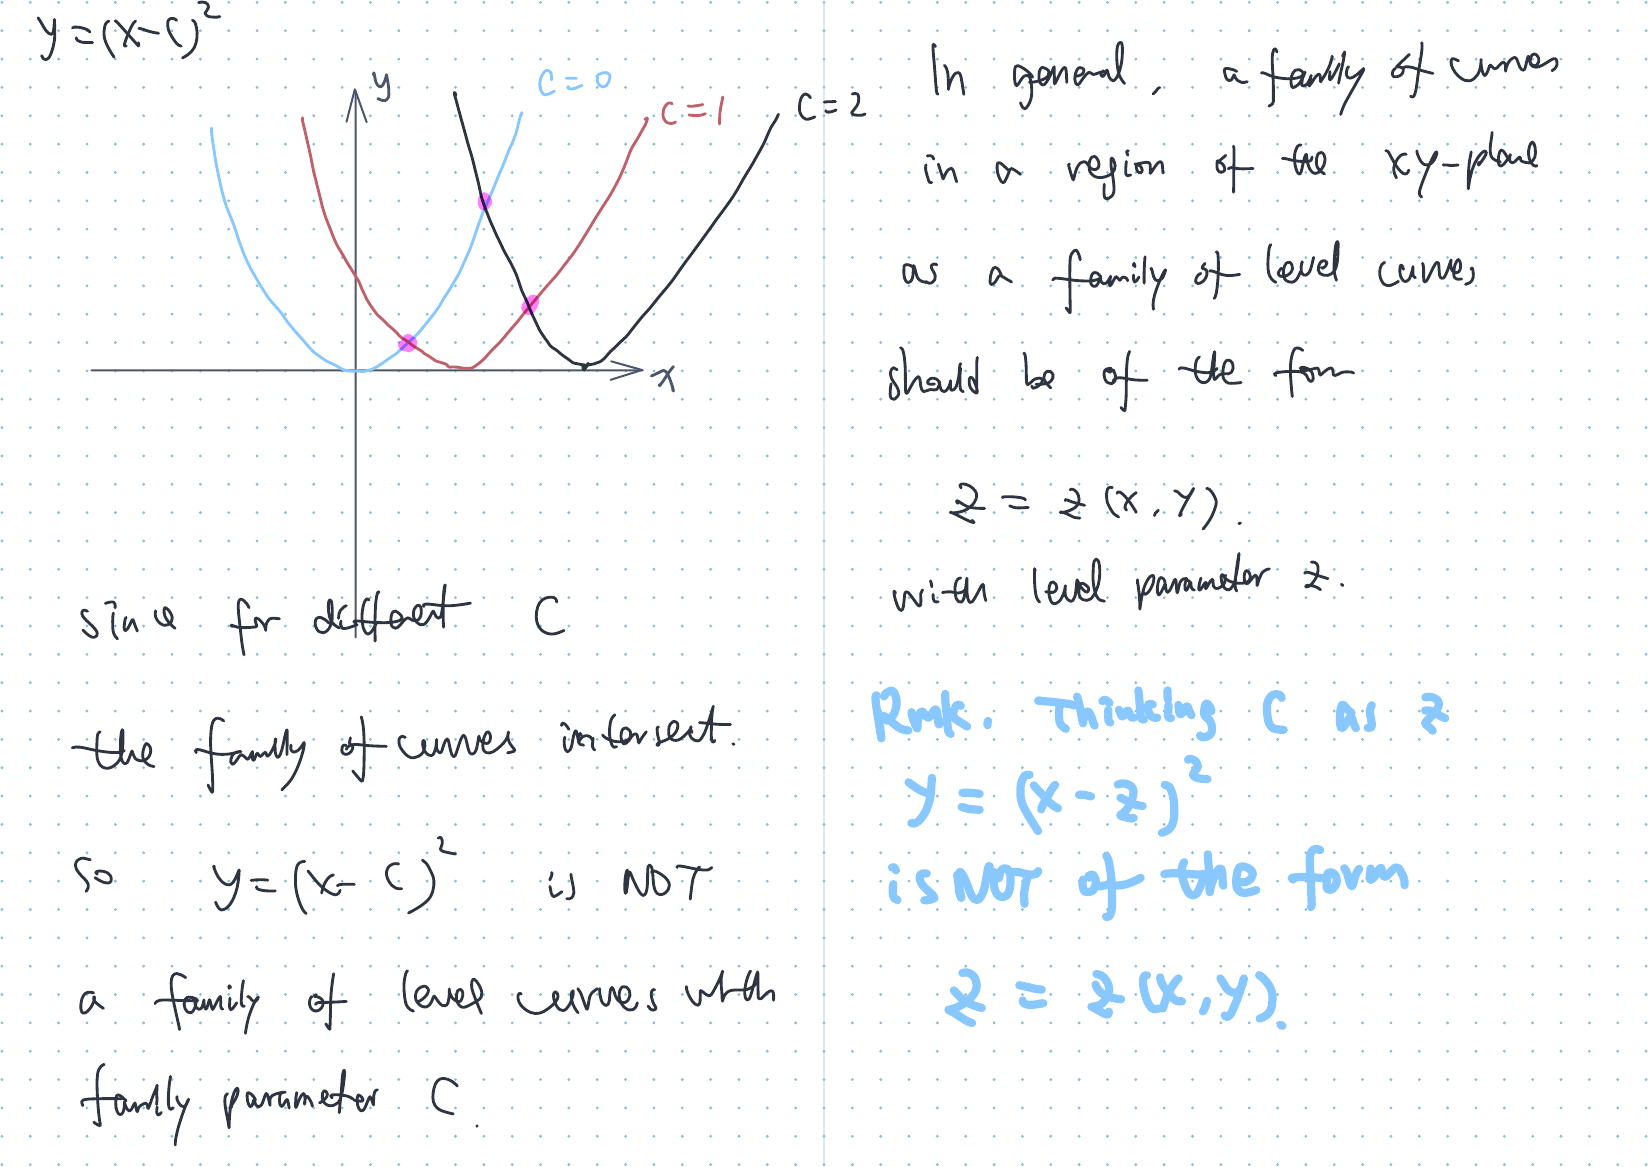 y = (x-C)²
y
C = 0
C = 1
C = 2
x
since for different C
the family of curves intersect.
So y = (x- C)² is NOT
a family of level curves with
family parameter C.
In general, a family of curves
in a region of the xy-plane
as a family of level curves
should be of the form
z = z (x, y).
with level parameter z.
Rmk. Thinking C as z
y = (x - z)²
is NOT of the form
z = z (x, y).